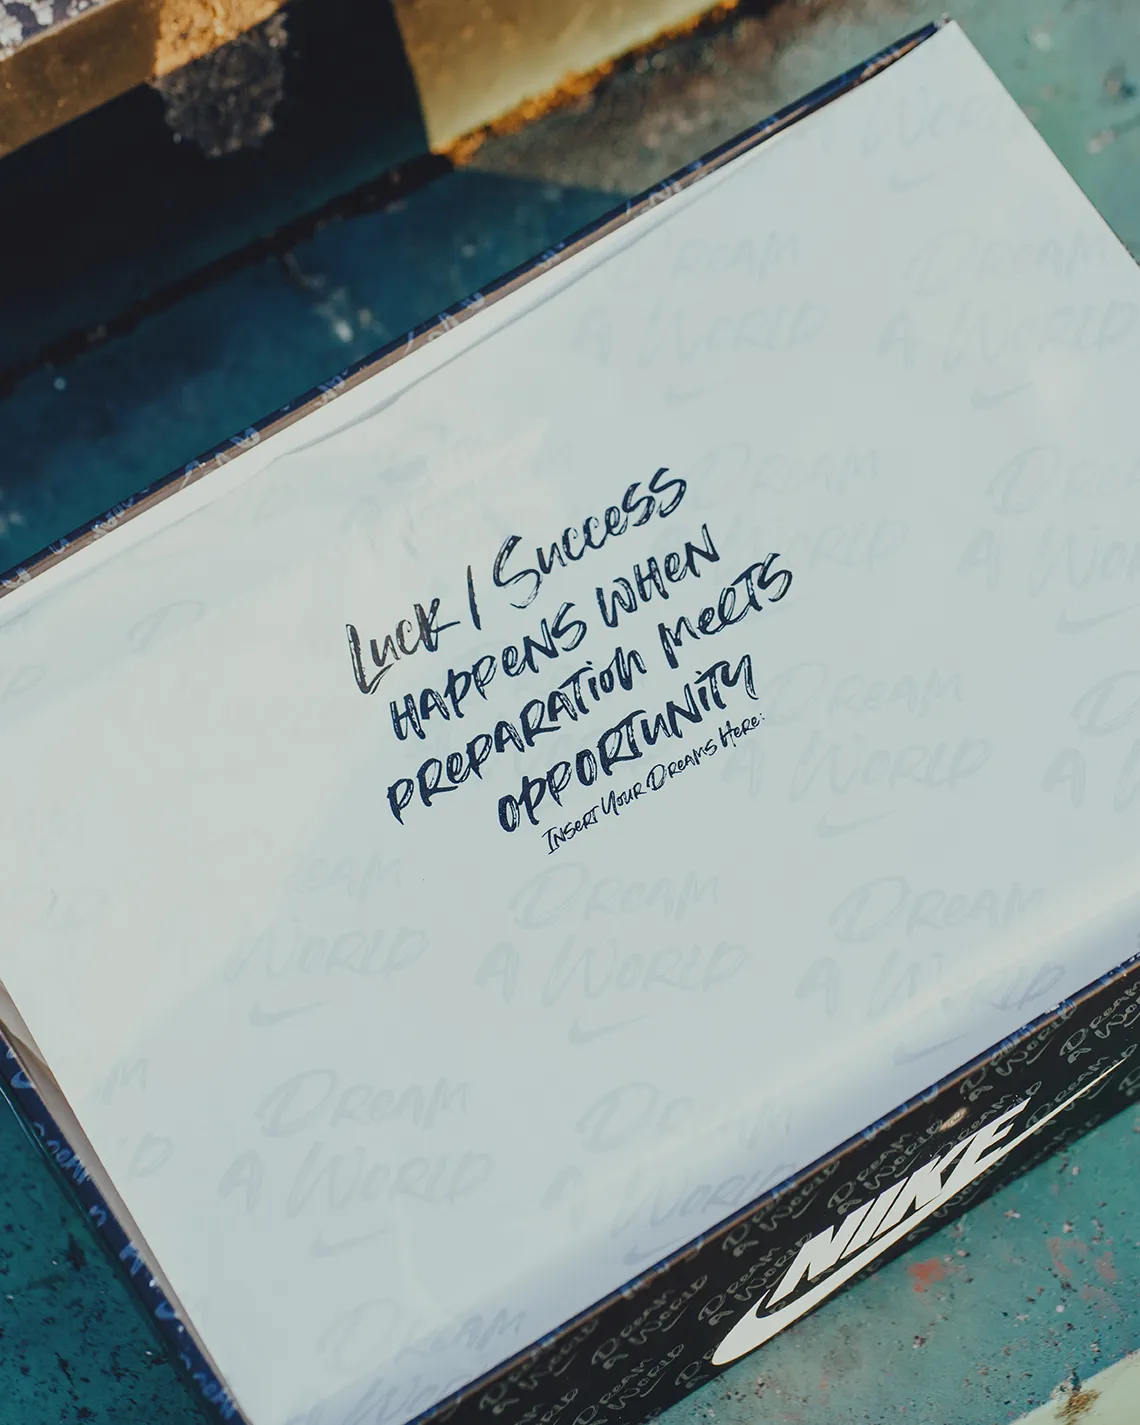 Luck / Success
Happens When
Preparation Meets
Opportunity
Insert Your Dreams Here:
Dream
A World
Dream
A World
Dream
A World
Dream
A World
Dream
A World
Dream
A World
NIKE